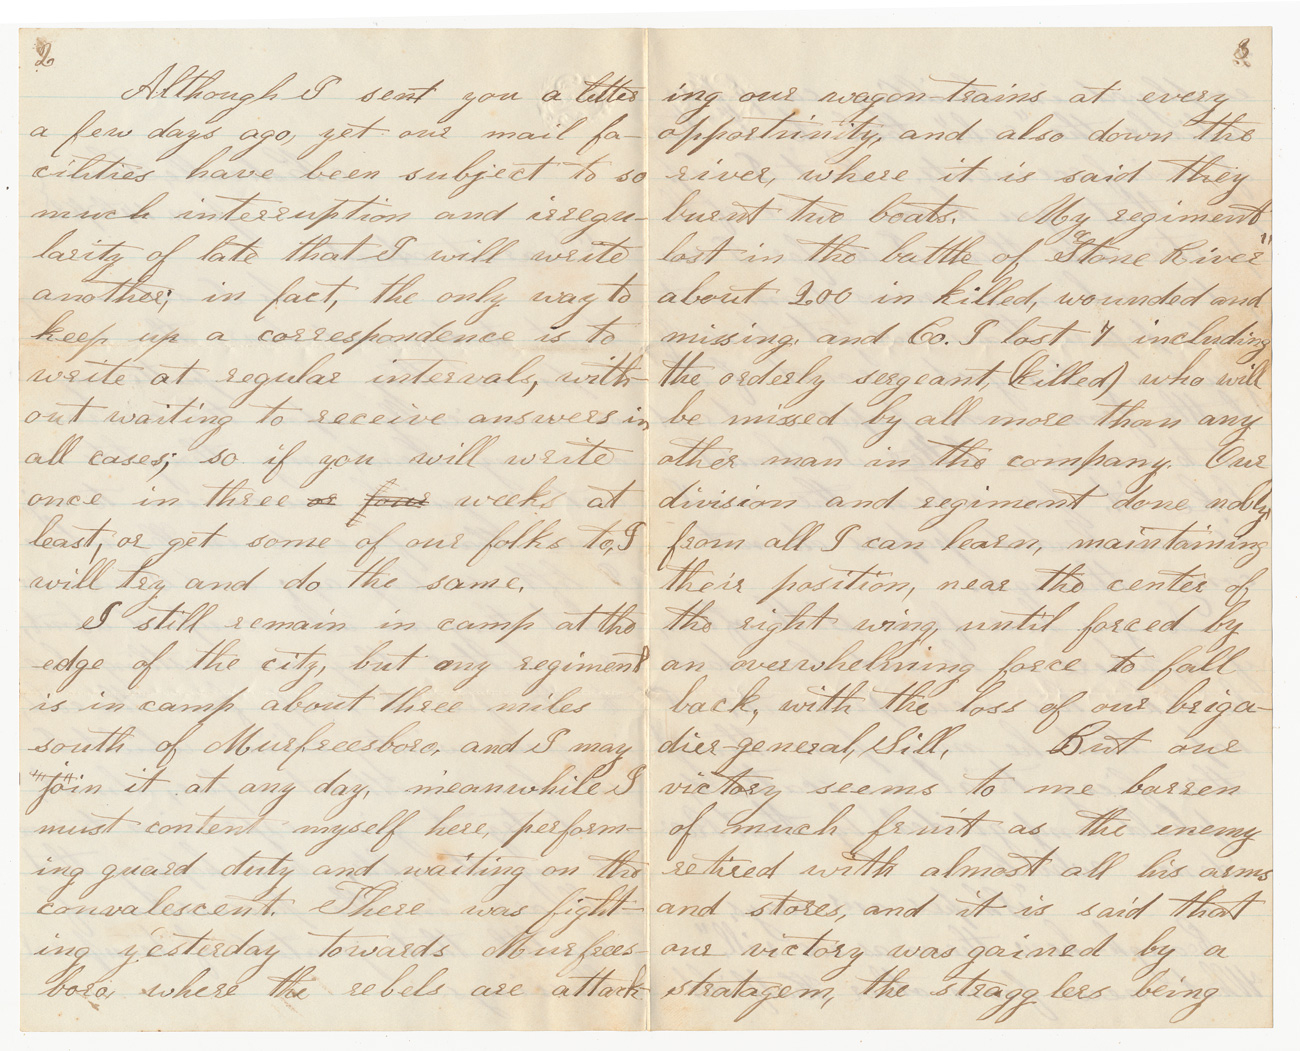 2
Although I sent you a letter
a few days ago, yet our mail fa-
cilities have been subject to so
much interruption and irregu-
larity of late that I will write
another; in fact, the only way to
keep up a correspondence is to
write at regular intervals, with-
out waiting to receive answers in
all cases; so if you will write
once in three or four weeks at
least, or get some of our folks to, I
will try and do the same.
I still remain in camp at the
edge of the city, but my regiment
is in camp about three miles
south of Murfreesboro, and I may
"join" it at any day, meanwhile I
must content myself here, perform-
ing guard duty and waiting on the
convalescent. There was fight-
ing yesterday towards Murfrees-
boro, where the rebels are attack-
3
ing our wagon trains at every
opportunity, and also down the
river, where it is said they
burnt two boats. My regiment
lost in the battle of "Stone River"
about 200 in killed, wounded and
missing, and Co. I lost 7 including
the orderly sergeant, (killed) who will
be missed by all more than any
other man in the company. Our
division and regiment done nobly
from all I can learn, maintaining
their position, near the center of
the right wing, until forced by
an overwhelming force to fall
back, with the loss of our briga-
dier-general, Sill, But our
victory seems to me barren
of much fruit as the enemy
retired with almost all his arms
and stores, and it is said that
our victory was gained by a
stratagem, the stragglers being